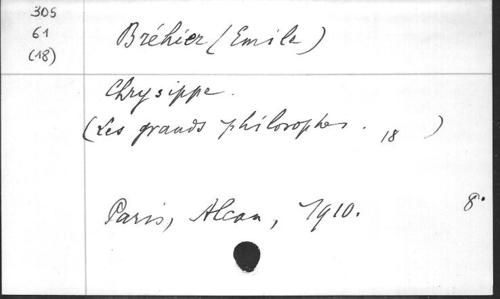 305
61
(18)
Bréhier (Emile)
Chrysippe.
(Les grands philosophes. 18)
Paris, Alcan, 1910.
8°